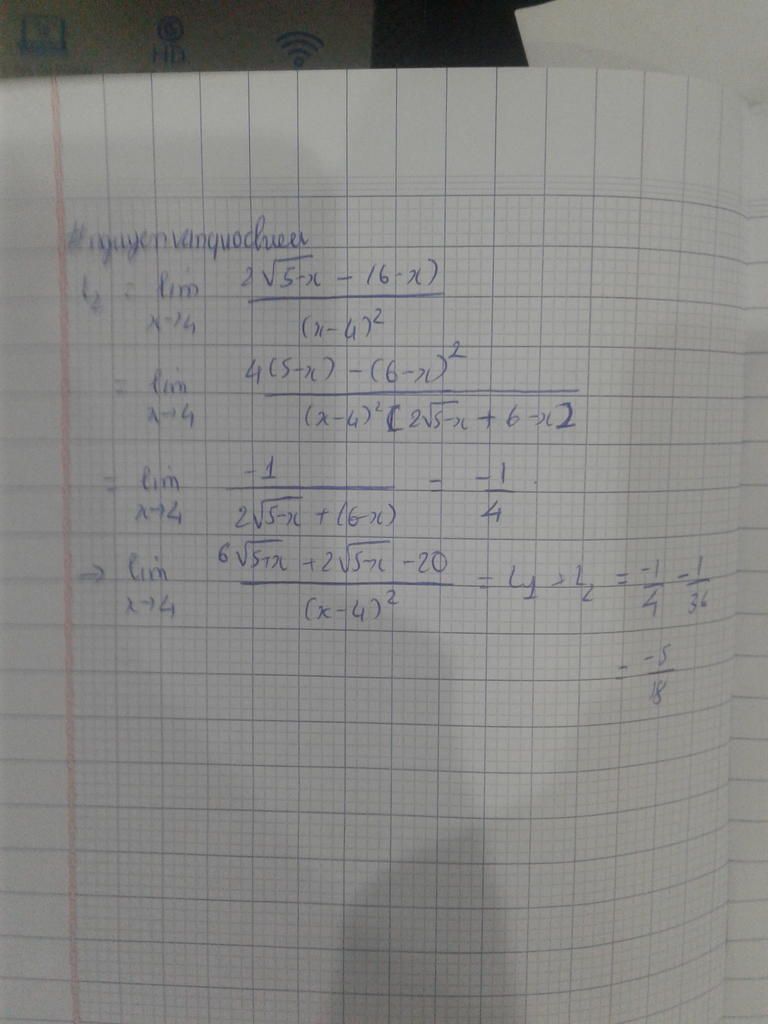 HD
#nguyenvanquocbuu
L₂ = lim x→4 (2√(5-x) - (6-x)) / (x-4)²
= lim x→4 (4(5-x) - (6-x)²) / ((x-4)² [2√(5-x) + 6-x])
= lim x→4 -1 / (2√(5-x) + (6-x)) = -1/4
⇒ lim x→4 (6√(5+x) + 2√(5-x) - 20) / (x-4)² = L₁ + L₂ = -1/4 - 1/36
= -5/18